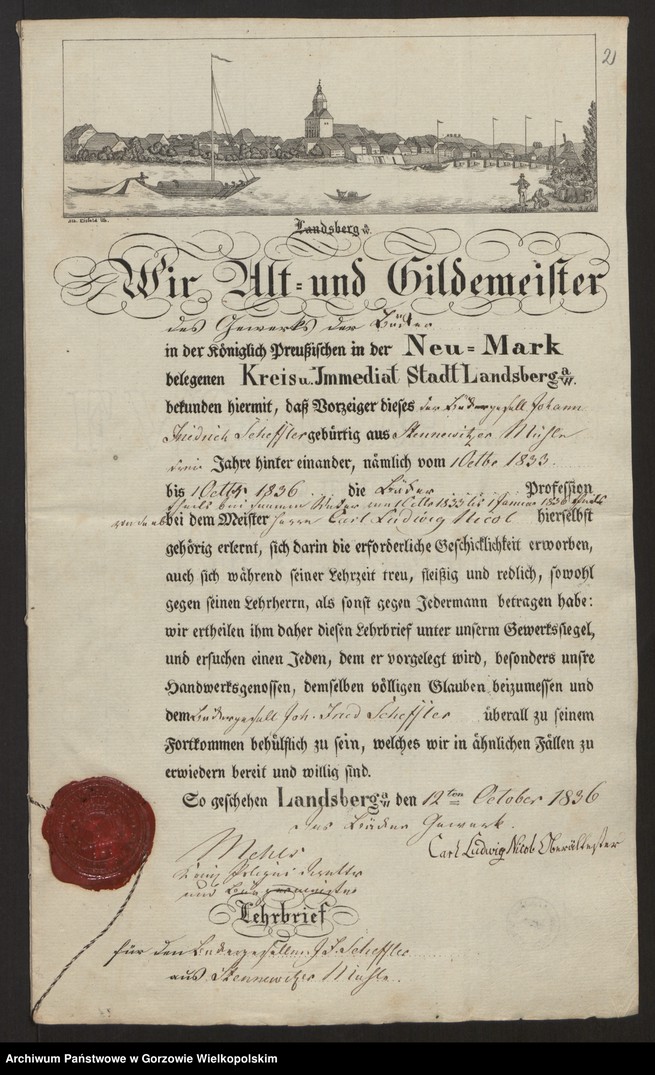 2)
Landsberg a/W.
Wir Alt= und Gildemeister
des Gewerks der Bäcker
in der Königlich Preußischen in der Neu=Mark
belegenen Kreis u. Immediat Stadt Landsberg a/W.
bekunden hiermit, daß Vorzeiger dieses der Bäckergesell Johann
Friedrich Scheffler gebürtig aus Stennewitzer Mühle
drei Jahre hinter einander, nämlich vom 1 Octbr 1833.
bis 1 Octbr 1836 die Bäcker Profession
theils bei 1833 bis 1 Januar 1836 theils
bei dem Meister Herrn Carl Ludwig Nicol hierselbst
gehörig erlernt, sich darin die erforderliche Geschicklichkeit erworben,
auch sich während seiner Lehrzeit treu, fleißig und redlich, sowohl
gegen seinen Lehrherrn, als sonst gegen Jedermann betragen habe:
wir ertheilen ihm daher diesen Lehrbrief unter unserm Gewerkssiegel,
und ersuchen einen Jeden, dem er vorgelegt wird, besonders unsre
Handwerksgenossen, demselben völligen Glauben beizumessen und
dem Bäckergesell Joh. Fried Scheffler überall zu seinem
Fortkommen behülflich zu sein, welches wir in ähnlichen Fällen zu
erwiedern bereit und willig sind.
So geschehen Landsberg a/W den 12ten October 1836
Das Bäcker Gewerk.
Carl Ludwig Nicol Oberältester
und Bürgermeister
Lehrbrief
für den Bäckergesellen J. F. Scheffler
aus Stennewitzer Mühle.
Archiwum Państwowe w Gorzowie Wielkopolskim